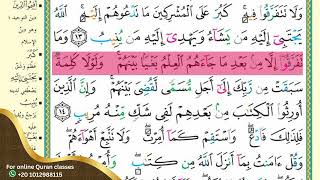 وَلَا تَتَفَرَّقُوا۟ فِيهِ كَبُرَ عَلَى ٱلْمُشْرِكِينَ مَا تَدْعُوهُمْ إِلَيْهِ ٱللَّهُ
يَجْتَبِىٓ إِلَيْهِ مَن يَشَآءُ وَيَهْدِىٓ إِلَيْهِ مَن يُنِيبُ ١٣ وَمَا
تَفَرَّقُوٓا۟ إِلَّا مِنۢ بَعْدِ مَا جَآءَهُمُ ٱلْعِلْمُ بَغْيًۢا بَيْنَهُمْ وَلَوْلَا كَلِمَةٌ
سَبَقَتْ مِن رَّبِّكَ إِلَىٰٓ أَجَلٍ مُّسَمًّى لَّقُضِىَ بَيْنَهُمْ وَإِنَّ ٱلَّذِينَ
أُورِثُوا۟ ٱلْكِتَٰبَ مِنۢ بَعْدِهِمْ لَفِى شَكٍّ مِّنْهُ مُرِيبٍ ١٤
فَلِذَٰلِكَ فَٱدْعُ وَٱسْتَقِمْ كَمَآ أُمِرْتَ وَلَا تَتَّبِعْ أَهْوَآءَهُمْ
وَقُلْ ءَامَنتُ بِمَآ أَنزَلَ ٱللَّهُ مِن كِتَٰبٍ
For online Quran classes
+20 1012988115